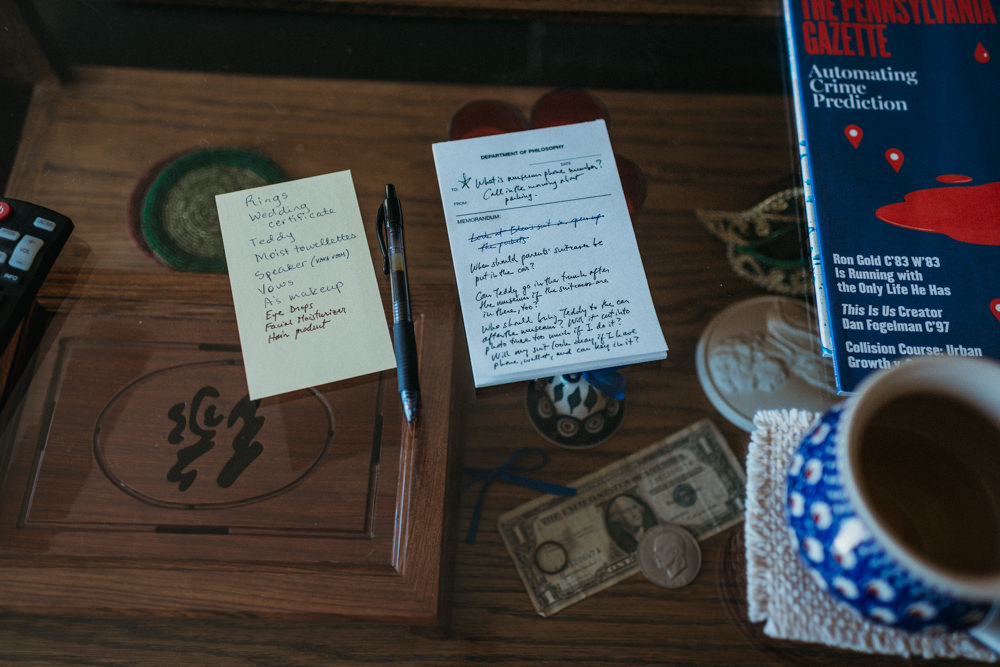 Rings
Wedding
certificate
Teddy
Moist towellettes
Speaker (VIVA VOOM)
Vows
A's makeup
Eye Drops
Facial Moisturizer
Hair product
DEPARTMENT OF PHILOSOPHY
DATE
TO:
What is museum phone number?
Call in the morning about
parking.
FROM:
MEMORANDUM:
Look at Glen's suit or open up
the pockets.
When should parents' suitcases be
put in the car?
Can Teddy go in the trunk after
the museum if the suitcases are
in there, too?
Who should bring Teddy to the car
after the museum? Will it cut into
photo time too much if I do it?
Will my suit look okay if I have
phone, wallet, and car key in it?
THE PENNSYLVANIA
GAZETTE
Automating
Crime
Prediction
Ron Gold C'83 W'83
Is Running with
the Only Life He Has
This Is Us Creator
Dan Fogelman C'97
Collision Course: Urban
Growth
INFO
THE UNITED STATES OF AMERICA
ONE DOLLAR